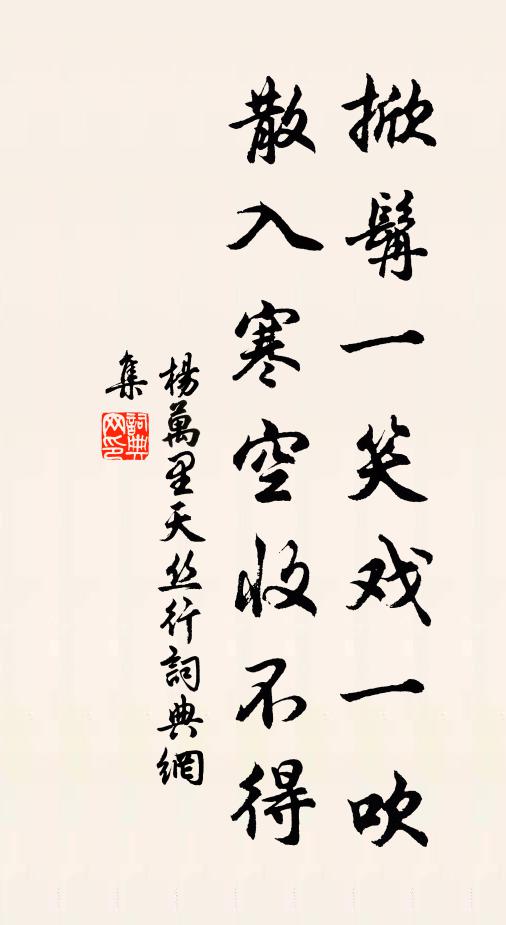 掀髯一笑戏一吹
散入寒空收不得
楊萬里天丝行詞典網
集
詞典
网印